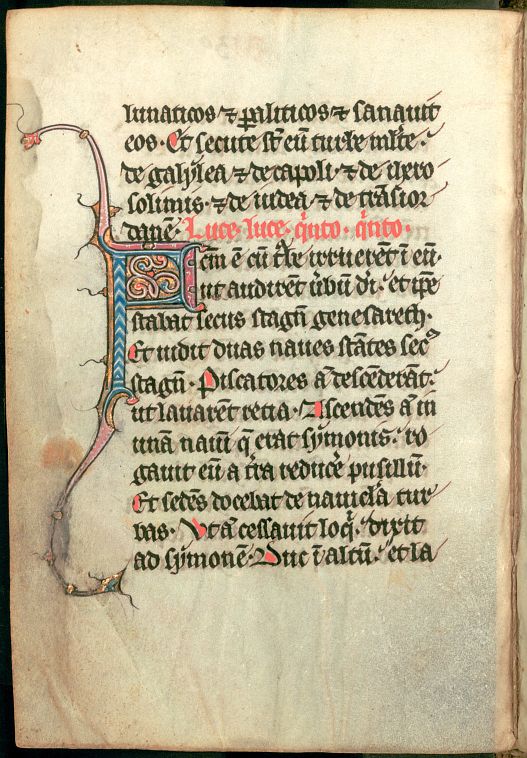 lunaticos ⁊ ꝑaliticos ⁊ sanauit
eos. Et secute st̄ eū turbe ml̄te.
de galylea ⁊ decapoli. ⁊ de ihero
solimis. ⁊ de iudea. ⁊ de trāsior
danē. Luce. luce. qi̇nto. qi̇nto.
Factm̄ ē cū tᵇe irruerēt ī eū.
ut audirēt ūbū dī. et ip̄e
stabat secus stagn̄ genesareth.
Et uidit duas naues stātes secꝰ
stagn̄. Piscatores aͧ descēderāt.
ut lauarēt retia. Ascendēs aͧ in
unā nauī q̄ erat symonis. ro
gauit eū a tr̄a reducē pusillū.
Et sedēs docebat de nauicl̄a tur
bas. Vt aͧ cessauit loq̇. dixit
ad symonē. Duc ī altū. et la